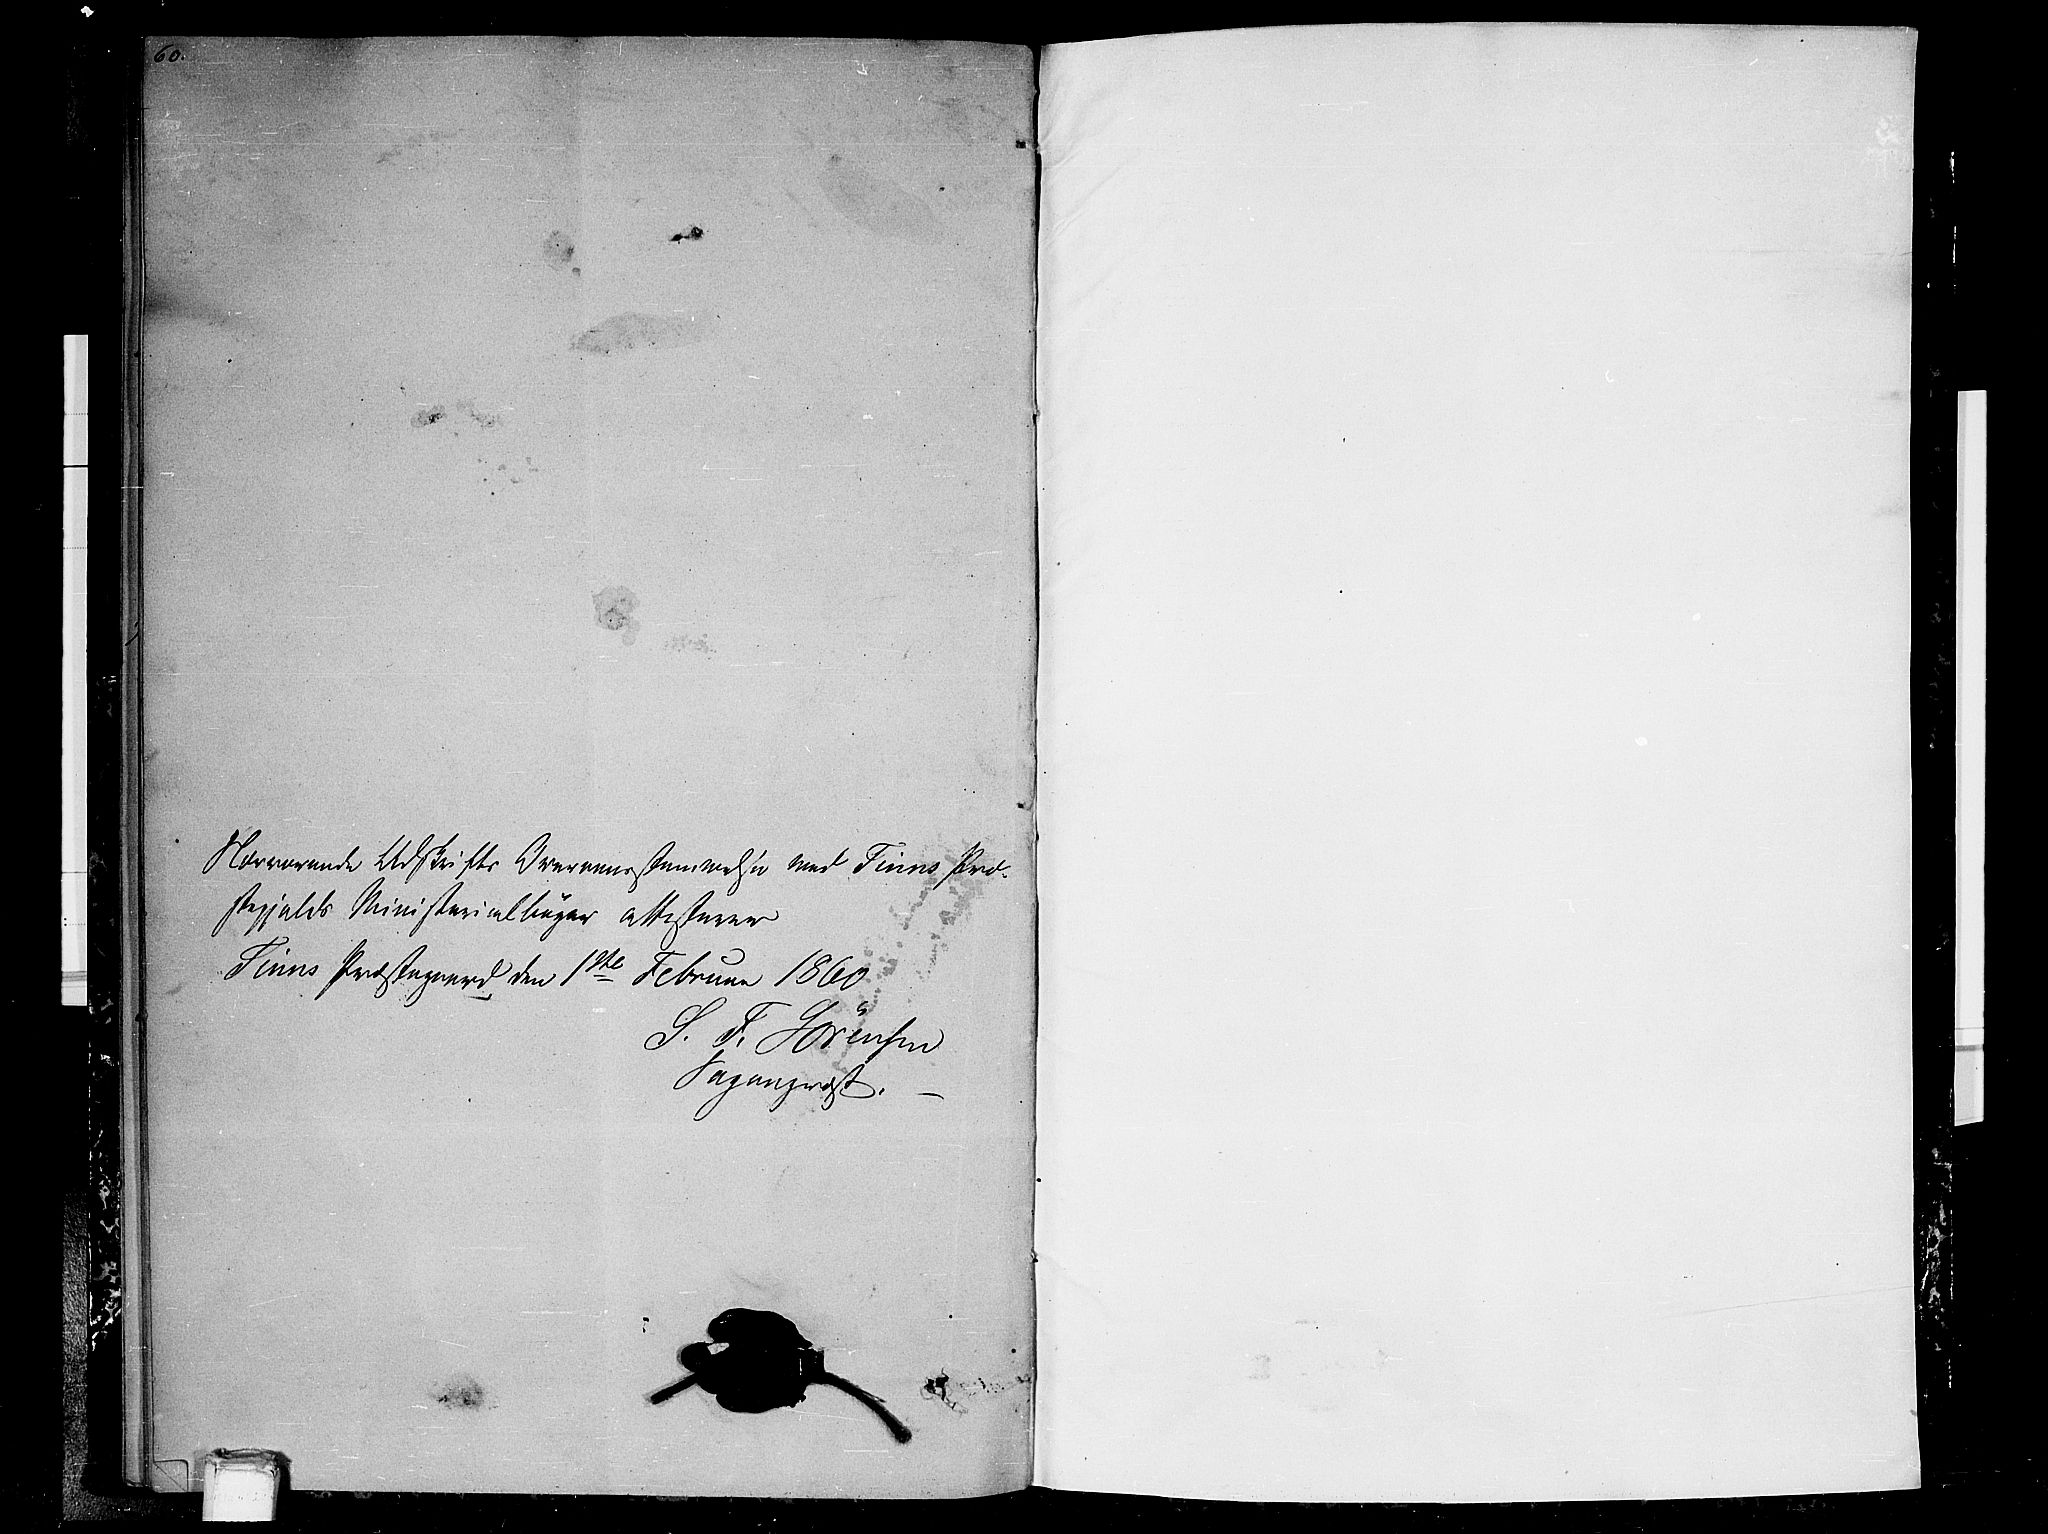 60.
Nærværende Udskrifts Overeensstemmelse med Tinns Præ-
stegjelds Ministerialbøger attesterer
Tinns Præstegaard den 1ste Februar 1860
S. F. Sörensen
Sogneprest.